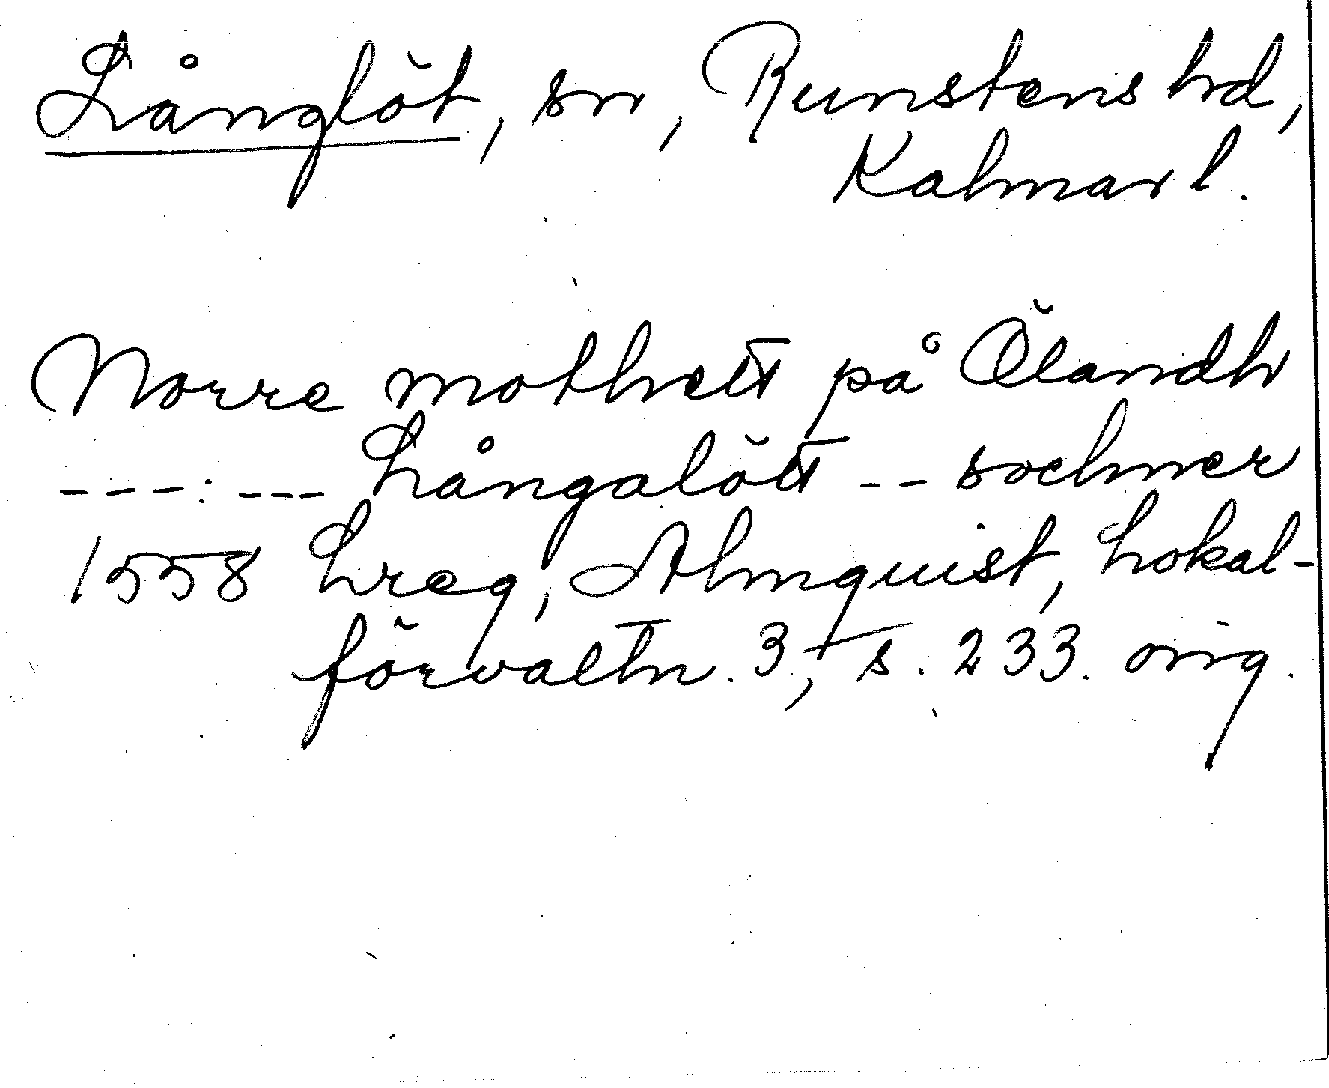 Långlöt, sn, Runstens hd,
Kalmar l.
Norre mothett på Ölandh
---:--- Långalött -- sochner
1558 Lreg, Almquist, Lokal-
förvaltn. 3, s. 233. orig.